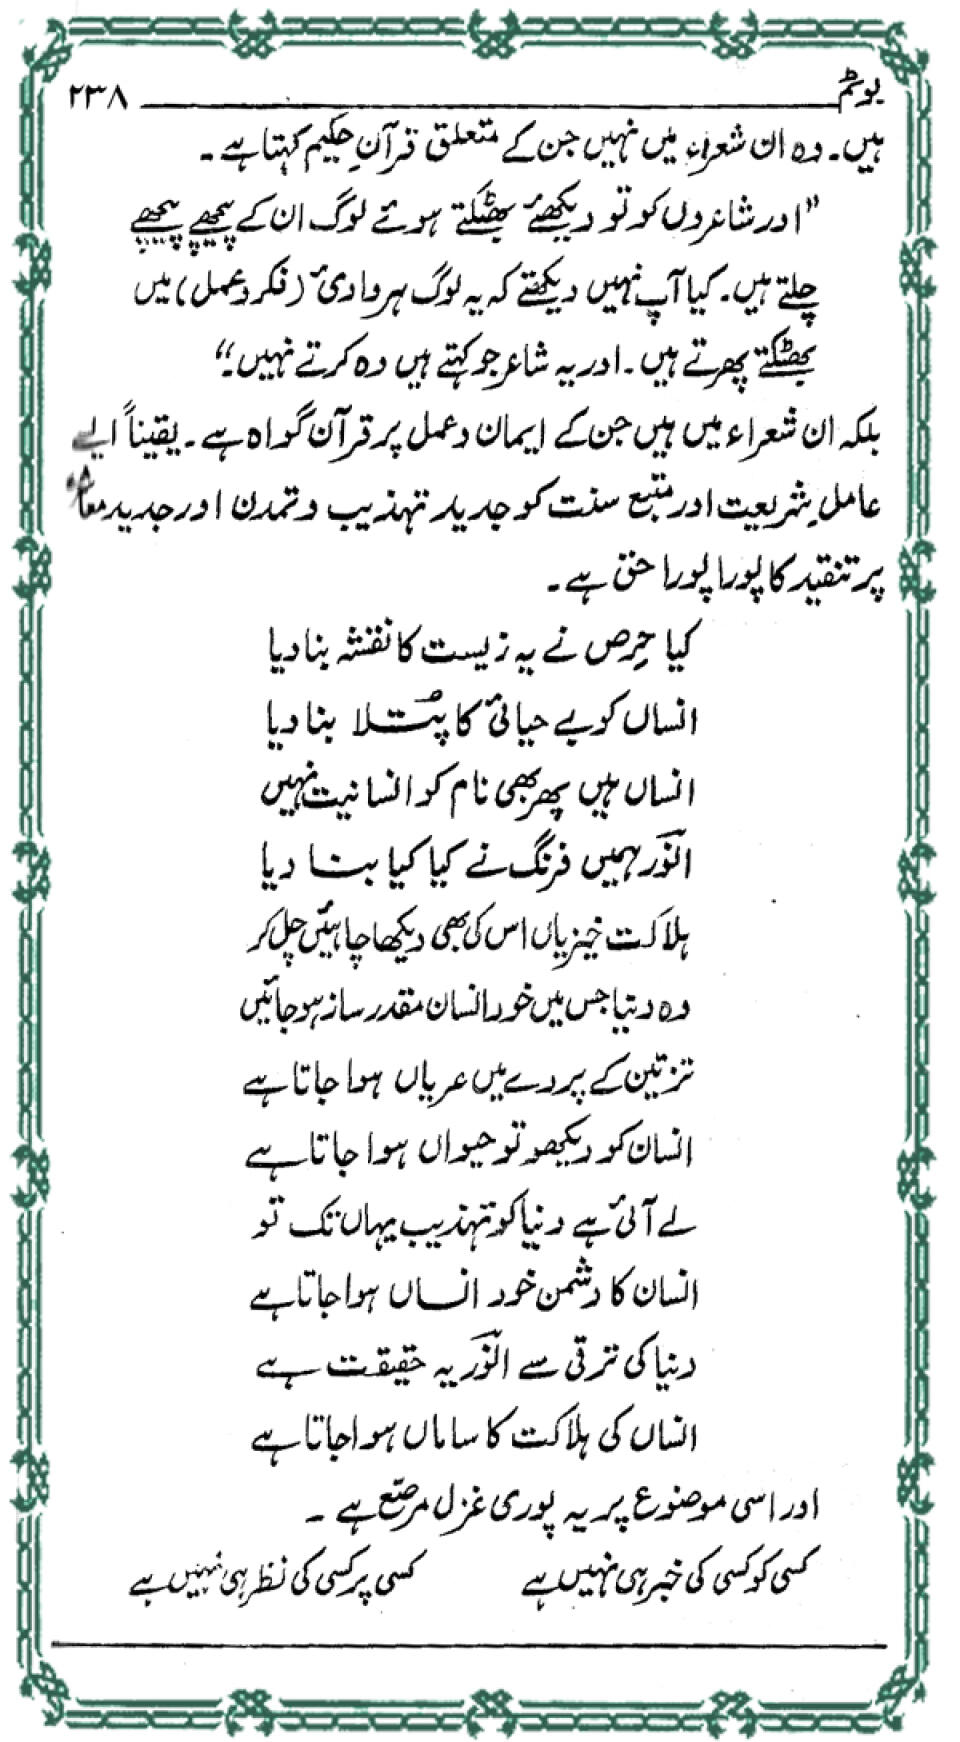 یوٹم ۲۳۸
ہیں۔ وہ ان شعراء میں نہیں جن کے متعلق قرآنِ حکیم کہتا ہے۔
”اور شاعروں کو تو دیکھئے بھٹکتے ہوئے لوگ ان کے پیچھے پیچھے
چلتے ہیں۔ کیا آپ نہیں دیکھتے کہ یہ لوگ ہر وادیٔ (فکر و عمل) میں
بھٹکتے پھرتے ہیں۔ اور یہ شاعر جو کہتے ہیں وہ کرتے نہیں۔“
بلکہ ان شعراء میں ہیں جن کے ایمان و عمل پر قرآن گواہ ہے۔ یقیناً ایسے
عاملِ شریعت اور متبع سنت کو جدید تہذیب و تمدن اور جدید
پر تنقید کا پورا پورا حق ہے۔
کیا حرِص نے یہ زیست کا نقشہ بنا دیا
انساں کو بے حیائی کا پُتلا بنا دیا
انساں ہیں پھر بھی نام کو انسانیت نہیں
انورؔ ہمیں فرنگ نے کیا کیا بنا دیا
ہلاکت خیزیاں اس کی بھی دیکھا چاہئیں چل کر
وہ دنیا جس میں خود انسان مقدر ساز ہو جائیں
تزئین کے پردے میں عریاں ہوا جاتا ہے
انسان کو دیکھو تو حیواں ہوا جاتا ہے
لے آئی ہے دنیا کو تہذیب یہاں تک تو
انسان کا دشمن خود انساں ہوا جاتا ہے
دنیا کی ترقی سے انورؔ یہ حقیقت ہے
انساں کی ہلاکت کا ساماں ہوا جاتا ہے
اور اسی موضوع پر یہ پوری غزل مرصّع ہے۔
کسی کو کسی کی خبر ہی نہیں ہے کسی پر کسی کی نظر ہی نہیں ہے